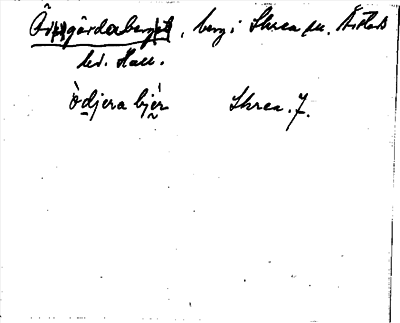 gårdaberg, berg i Skrea sn. Årstads
hd. Hall.
òdjera bjér Skrea. J.